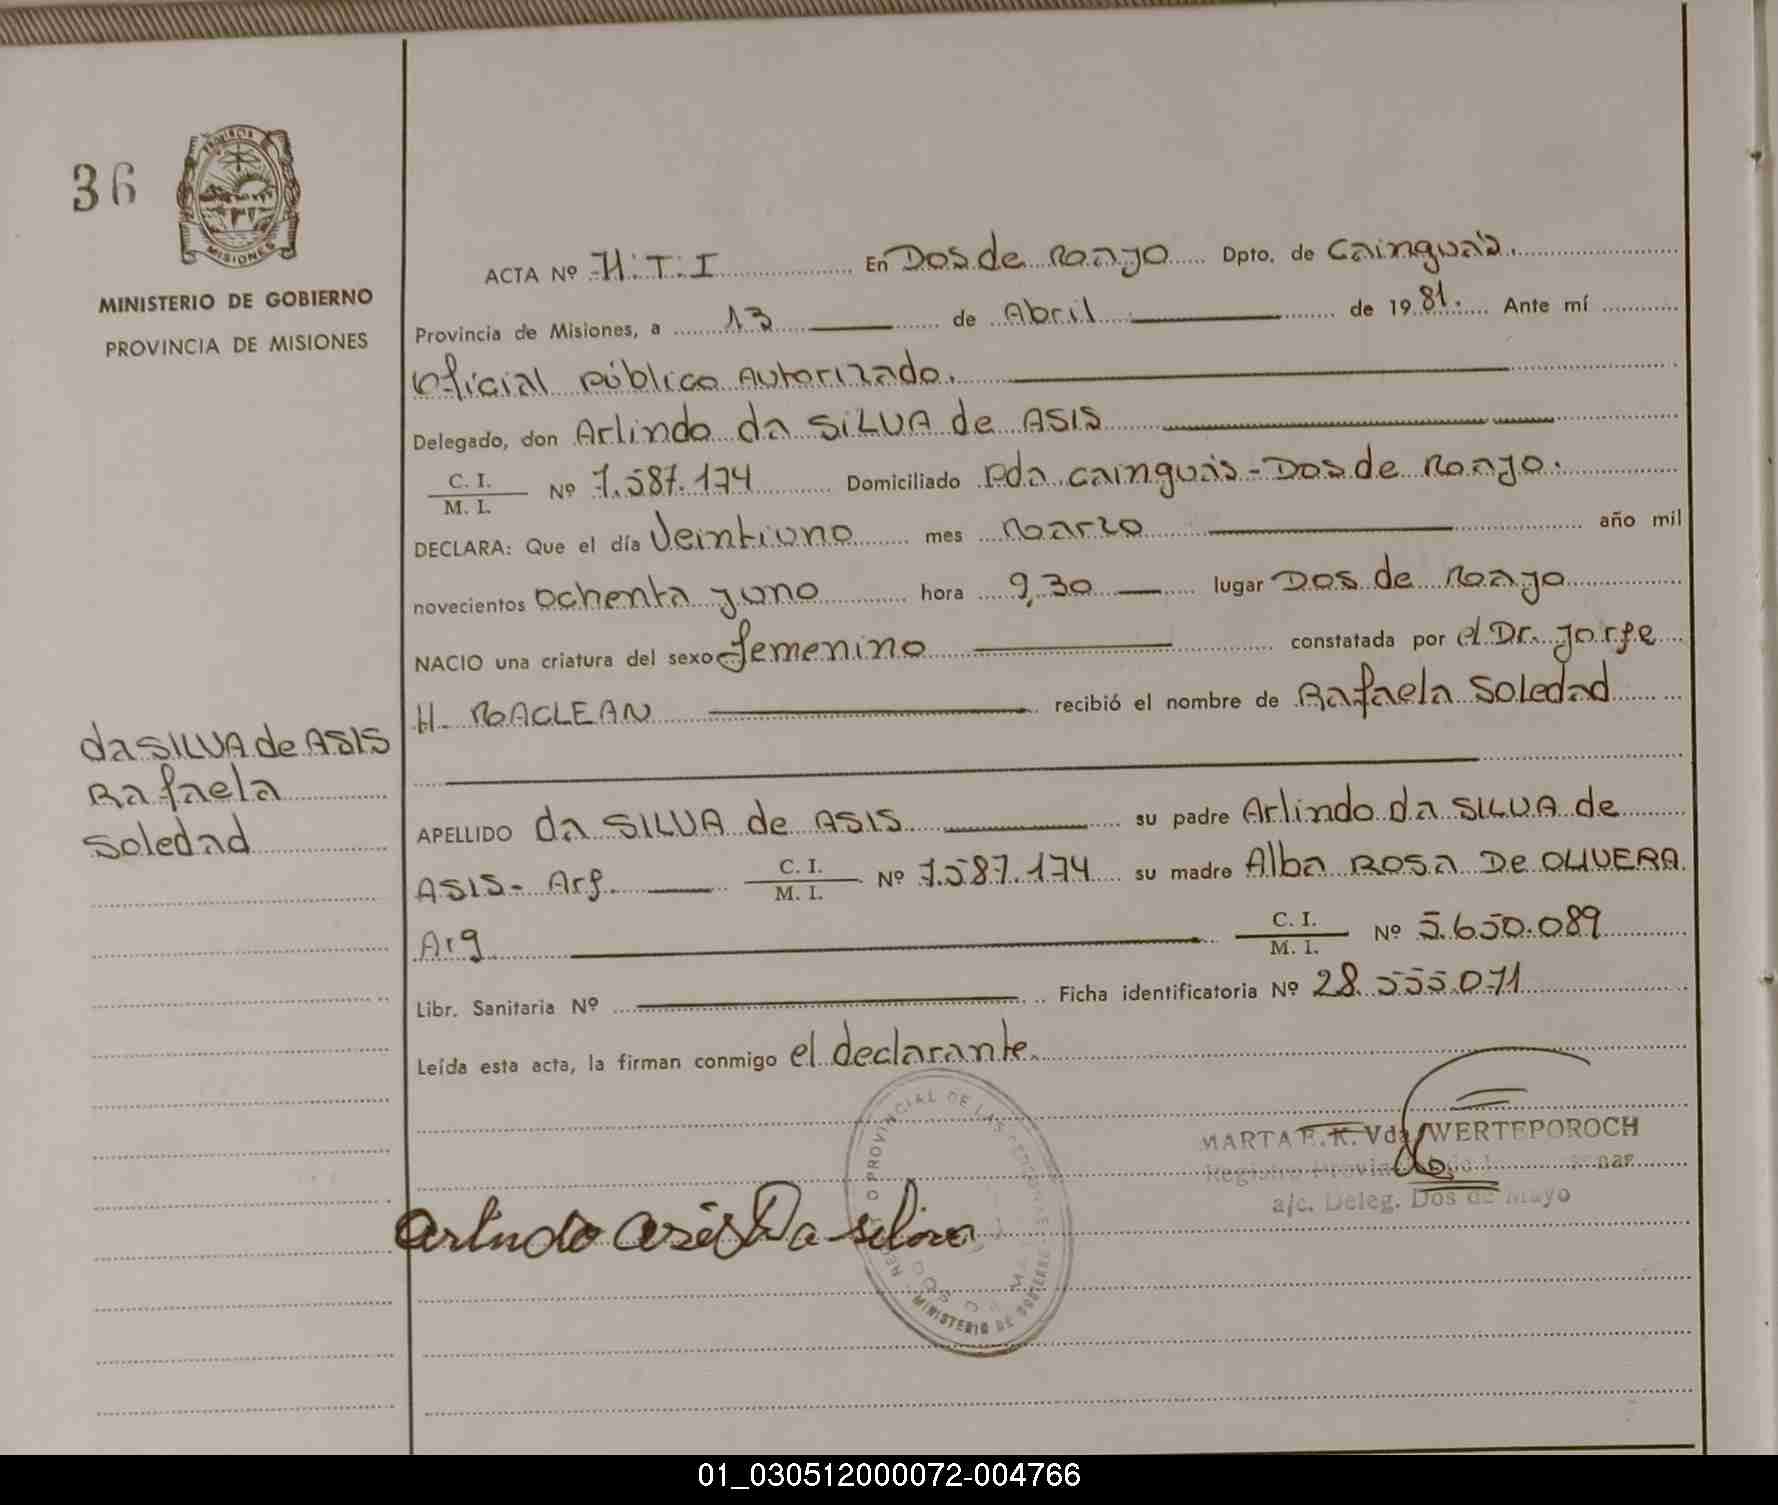 36
PROVINCIA
MISIONES
MINISTERIO DE GOBIERNO
PROVINCIA DE MISIONES
ACTA Nº H.T.I En Dos de Mayo Dpto. de Cainguás.
Provincia de Misiones, a 13 de Abril de 1981. Ante mí
Oficial Público Autorizado.
Delegado, don Arlindo da SILVA de ASIS
C. I.
M. I. Nº 7.587.174 Domiciliado Pda Cainguás-Dos de Mayo.
DECLARA: Que el día Veintiuno mes Marzo año mil
novecientos ochenta y uno hora 9,30 lugar Dos de Mayo
NACIO una criatura del sexo femenino constatada por el Dr. Jorge
H. MACLEAN recibió el nombre de Rafaela Soledad
da SILVA de ASIS
Rafaela
Soledad
APELLIDO da SILVA de ASIS su padre Arlindo da SILVA de
ASIS- Arg. C. I. M. I. Nº 7.587.174 su madre Alba Rosa De OLIVERA
Arg C. I. M. I. Nº 5.650.089
Libr. Sanitaria Nº Ficha identificatoria Nº 28.555.071
Leída esta acta, la firman conmigo el declarante.
MARTA E. K. Vda. WERTEPOROCH
Registro
a/c. Deleg. Dos de Mayo
Arlindo asis Da silva
PROVINCIAL DE LAS PERSONAS
MINISTERIO DE GOBIERNO
01_030512000072-004766